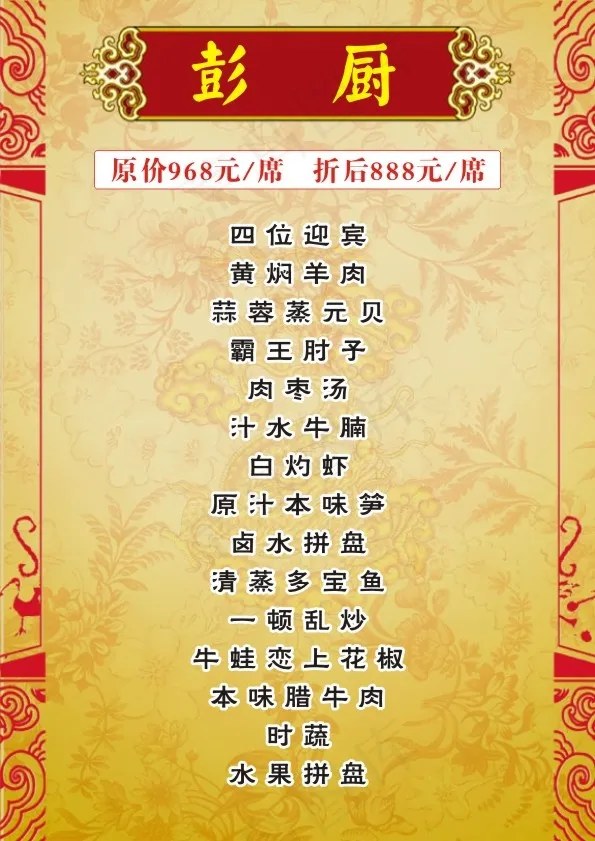 彭厨
原价968元/席 折后888元/席
四位迎宾
黄焖羊肉
蒜蓉蒸元贝
霸王肘子
肉枣汤
汁水牛腩
白灼虾
原汁本味笋
卤水拼盘
清蒸多宝鱼
一顿乱炒
牛蛙恋上花椒
本味腊牛肉
时蔬
水果拼盘